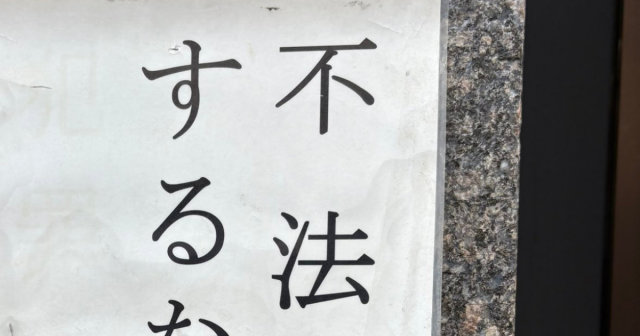 不法
する